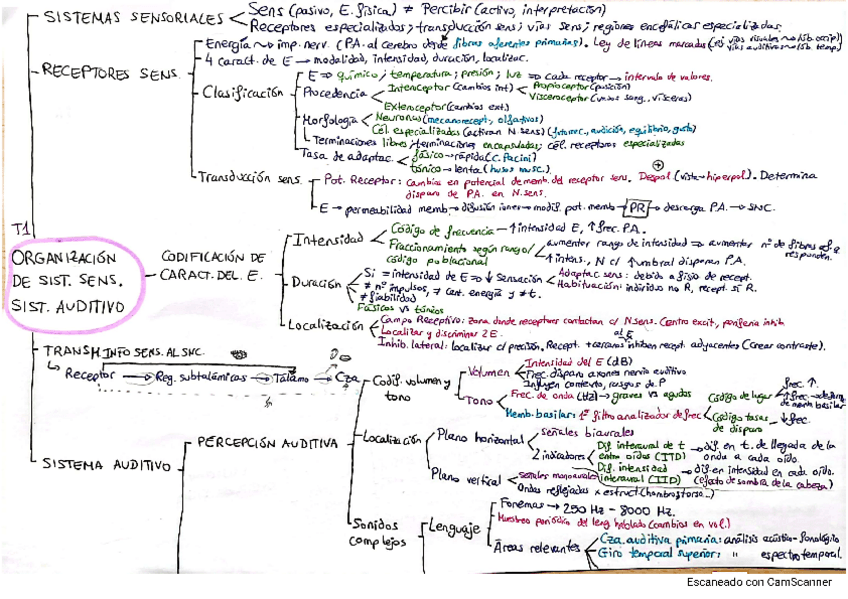 SISTEMAS SENSORIALES
Sens (pasivo, E. física) ≠ Percibir (activo, interpretación)
Receptores especializados; transducción sens; vías sens; regiones encefálicas especializadas.
RECEPTORES SENS.
Energía → imp. nerv. (P.A. al cerebro desde fibras aferentes primarias). Ley de líneas marcadas
4 caract. de E → modalidad, intensidad, duración, localizac.
Clasificación
E → químico; temperatura; presión; luz ⇒ cada receptor → intervalo de valores.
Procedencia
Interoceptor (cambios int)
Propioceptor (posición)
Visceroceptor (vasos sang., vísceras)
Exteroceptor (cambios ext.)
Morfología
Neuronas (mecanorecept., olfativos)
Cél. especializadas (activan N. sens) (fotorrec., audición, equilibrio, gusto)
Terminaciones libres; terminaciones encapsuladas; cél. receptoras especializadas
Tasa de adaptac.
fásico → rápida (C. Pacini)
tónico → lenta (husos musc.)
Transducción sens.
Pot. Receptor: cambios en potencial de memb. del receptor sens. Despol (vista → hiperpol). Determina
disparo de P.A. en N. sens.
E → permeabilidad memb. → difusión iones → modif. pot. memb → PR → descarga P.A. → SNC.
T1
ORGANIZACIÓN
DE SIST. SENS.
SIST. AUDITIVO
CODIFICACIÓN DE
CARACT. DEL E.
Intensidad
Código de frecuencia → ↑ intensidad E, ↑ frec. P.A.
Fraccionamiento según rango/
código poblacional
aumentar rango de intensidad ⇒ aumentar nº de fibras q
responden.
↑ intens., N c/ ↑ umbral disparan P.A.
Duración
Si = intensidad de E ⇒ ↓ sensación
≠ nº impulsos, ≠ cant. energía y ≠ t.
≠ fiabilidad
Fásicos vs tónicos
Adaptac. sens: debido a fisio de recept.
Habituación: individuo no R, recept. sí R.
Localización
Campo Receptivo: zona donde receptores contactan c/ N. sens. Centro excit., periferia inhib.
Localizar y discriminar 2 E. al E
Inhib. lateral: localizar c/ precisión. Recept. + cercanos inhiben recept. adyacentes (crear contraste).
TRANSM INFO SENS. AL SNC.
Receptor → Reg. subtalámicas → Tálamo → Cza
SISTEMA AUDITIVO
PERCEPCIÓN AUDITIVA
Codif. volumen y
tono
Volumen
Intensidad del E (dB)
Frec. disparo axones nervio auditivo
Influyen contexto, rasgos de P
Tono
Frec. de onda (Hz) → graves vs agudos
Memb. basilar: 1º filtro analizador de frec
Código de lugar
frec. ↑
memb basilar
Código tasas
de disparo → ↓ frec.
Localización
Plano horizontal
Señales biaurales
2 indicadores
Dif. interaural de t
entre oídos (ITD)
→ dif. en t. de llegada de la
onda a cada oído.
Dif. intensidad
interaural (IID)
→ dif. en intensidad en cada oído.
(efecto de sombra de la cabeza)
Plano vertical
Señales monoaurales
Ondas reflejadas x estruct (hombros, torso...)
Sonidos
complejos
Lenguaje
Fonemas → 250 Hz - 8000 Hz.
Muestreo periódico del leng hablado (cambios en vol.)
Áreas relevantes
Cza. auditiva primaria: análisis acústico-fonológico
Giro temporal superior: " espectrotemporal.
Escaneado con CamScanner